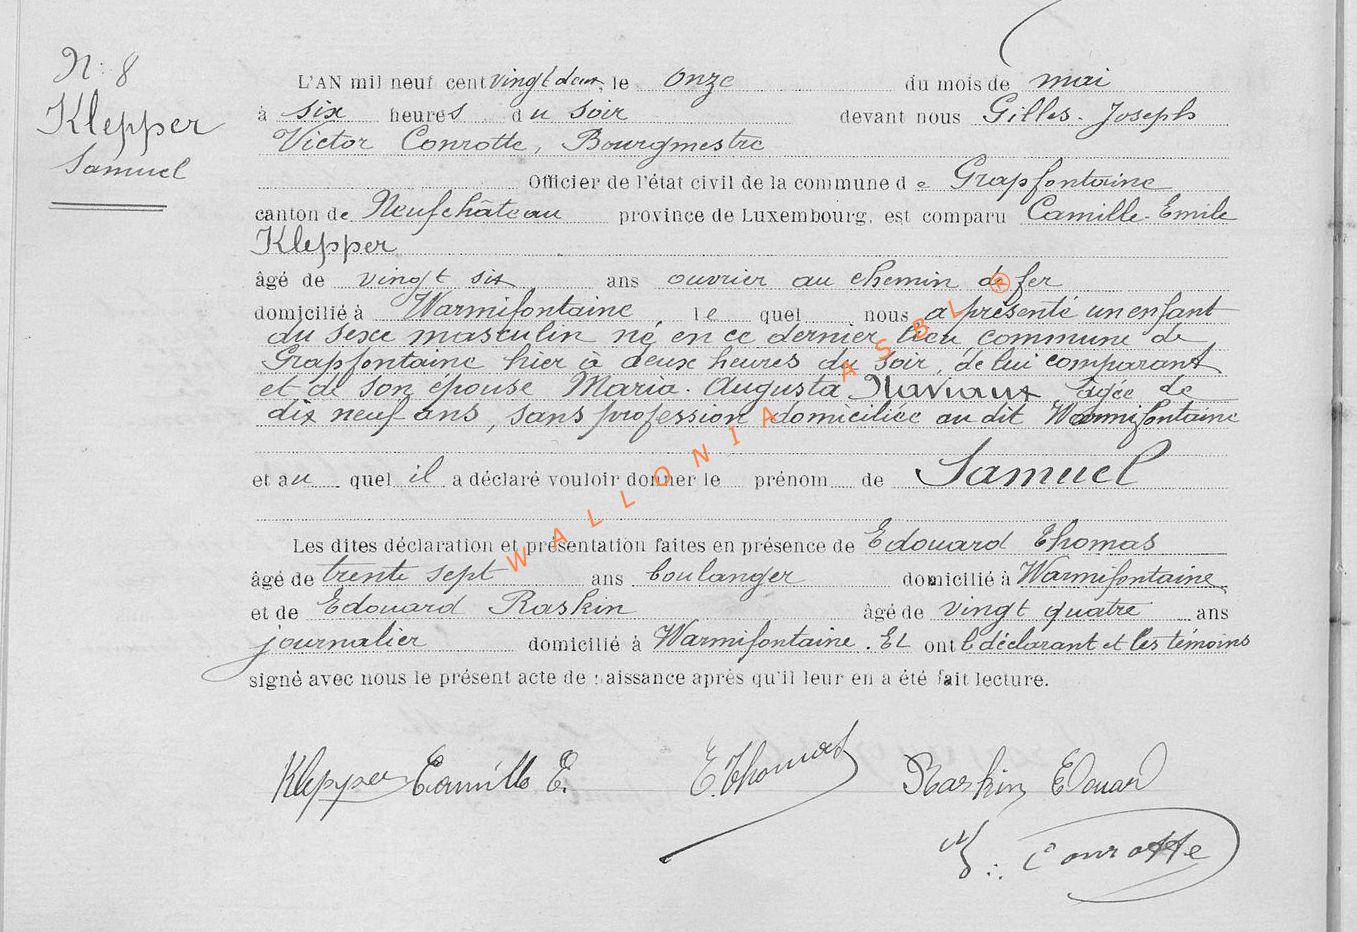 N: 8
Klepper
Samuel
L'AN mil neuf cent vingt deux, le onze du mois de mai
à six heures du soir devant nous Gilles-Joseph
Victor Conrotte, Bourgmestre
Officier de l'état civil de la commune de Grapfontaine
canton de Neufchâteau province de Luxembourg, est comparu Camille-Emile
Klepper
âgé de vingt six ans ouvrier au chemin de fer
domicilié à Warmifontaine, le quel nous a présenté un enfant
du sexe masculin né, en ce dernier lieu commune de
Grapfontaine hier à deux heures du soir, de lui comparant
et de son épouse Maria-Augusta Naviaux âgée de
dix neuf ans, sans profession domiciliée au dit Warmifontaine
et au quel il a déclaré vouloir donner le prénom de Samuel
Les dites déclaration et présentation faites en présence de Edouard Thomas
âgé de trente sept ans boulanger domicilié à Warmifontaine
et de Edouard Raskin âgé de vingt quatre ans
journalier domicilié à Warmifontaine. Et ont le déclarant et les témoins
signé avec nous le présent acte de naissance après qu'il leur en a été fait lecture.
Klepper Camille E. E. Thomas Raskin Edouard
Conrotte
WALLONIA ASBL ®